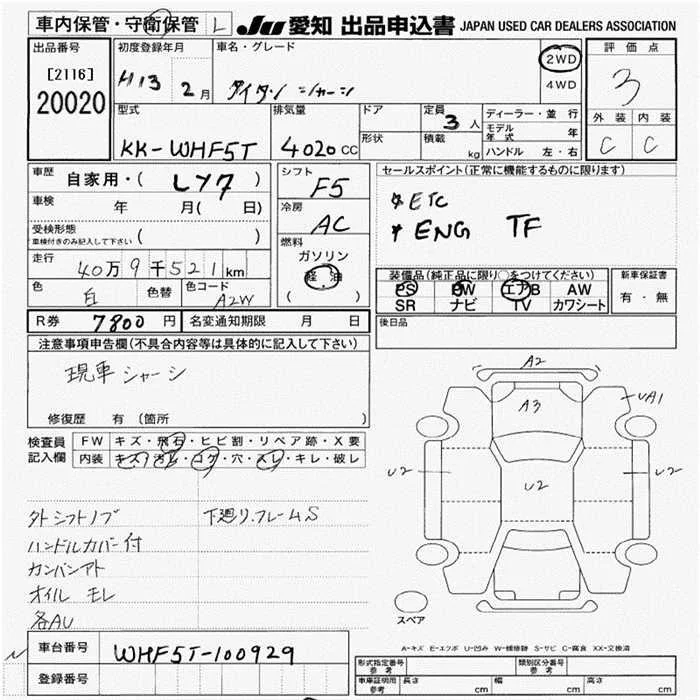 車内保管・守衛保管 L JU 愛知 出品申込書 JAPAN USED CAR DEALERS ASSOCIATION
出品番号 初度登録年月 車名・グレード 2WD 評価点
[2116] H13 2月 4WD 3
20020 型式 排気量 ドア 定員 3人 ディーラー・並行 外装 内装
形状 積載 kg モデル年式 年
KK-WHF5T 4020cc ハンドル 左・右 C C
車歴 自家用・( レソタ ) シフト F5 セールスポイント(正常に機能するものに限ります)
車検 年 月( 日) 冷房 AC * ETC
受検形態 車検付きのみ記入して下さい ( ) 燃料 * ENG TF
走行 40万9千521km ガソリン
軽油 装備品(純正品に限り○をつけてください) 新車保証書
色 白 色替 色コード A2W ( ) PS PW エアB AW 有・無
SR ナビ TV カワシート
R券 7800円 名変通知期限 月 日 後日品
注意事項申告欄(不具合内容等は具体的に記入して下さい)
現車 シャーシ
修復歴 有 (箇所 )
検査員 FW キズ・飛石・ヒビ割・リペア跡・X要
記入欄 内装 キズ・汚レ・コゲ・穴・スレ・キレ・破レ
A2
A3 UA1
U2 U2 U2
外シフトノブ 下廻リ.フレームS
ハンドルカバー付
カンバンアト
オイル モレ
各AU
スペア
A-キズ E-エクボ U-凹み W-補修跡 S-サビ C-腐食 XX-交換済
車台番号 WHF5T-100929
登録番号
形式指定番号 参考 類別区分番号 参考
車庫証明用 参考 長さ cm 幅 cm 高さ cm